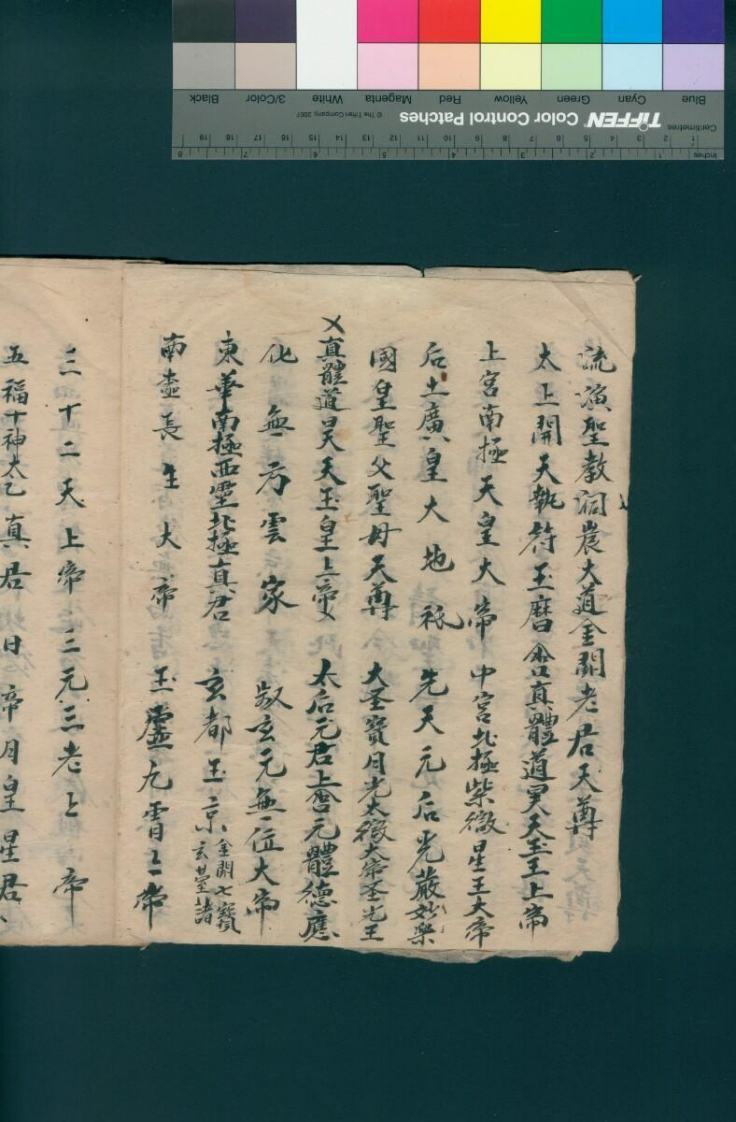 Blue Cyan Green Yellow Red Magenta White 3/Color Black
TIFFEN Color Control Patches © The Tiffen Company, 2007
Centimetres 1 2 3 4 5 6 7 8 9 10 11 12 13 14 15 16 17 18 19
Inches 1 2 3 4 5 6 7 8
流演聖教洞農大道金闕老君天尊
太上開天執符玉曆含真體道昊天玉王上帝
上宮南極天皇大帝 中宮北極紫微星王大帝
后土廣皇大地祇 先天元后光嚴妙樂
國皇聖父聖母天尊 大圣寶月光太微大帝圣先王
真體道昊天玉皇上帝 太后元君上含元體德應
化無方雲家 叙玄元無位大帝
東華南極西灵北極真君 玄都玉京金闕七寶玄臺諸
南壺長生大帝 玉虛九霄上帝
三十二天上帝三元三老上帝
五福十神太乙真君日帝月皇星君